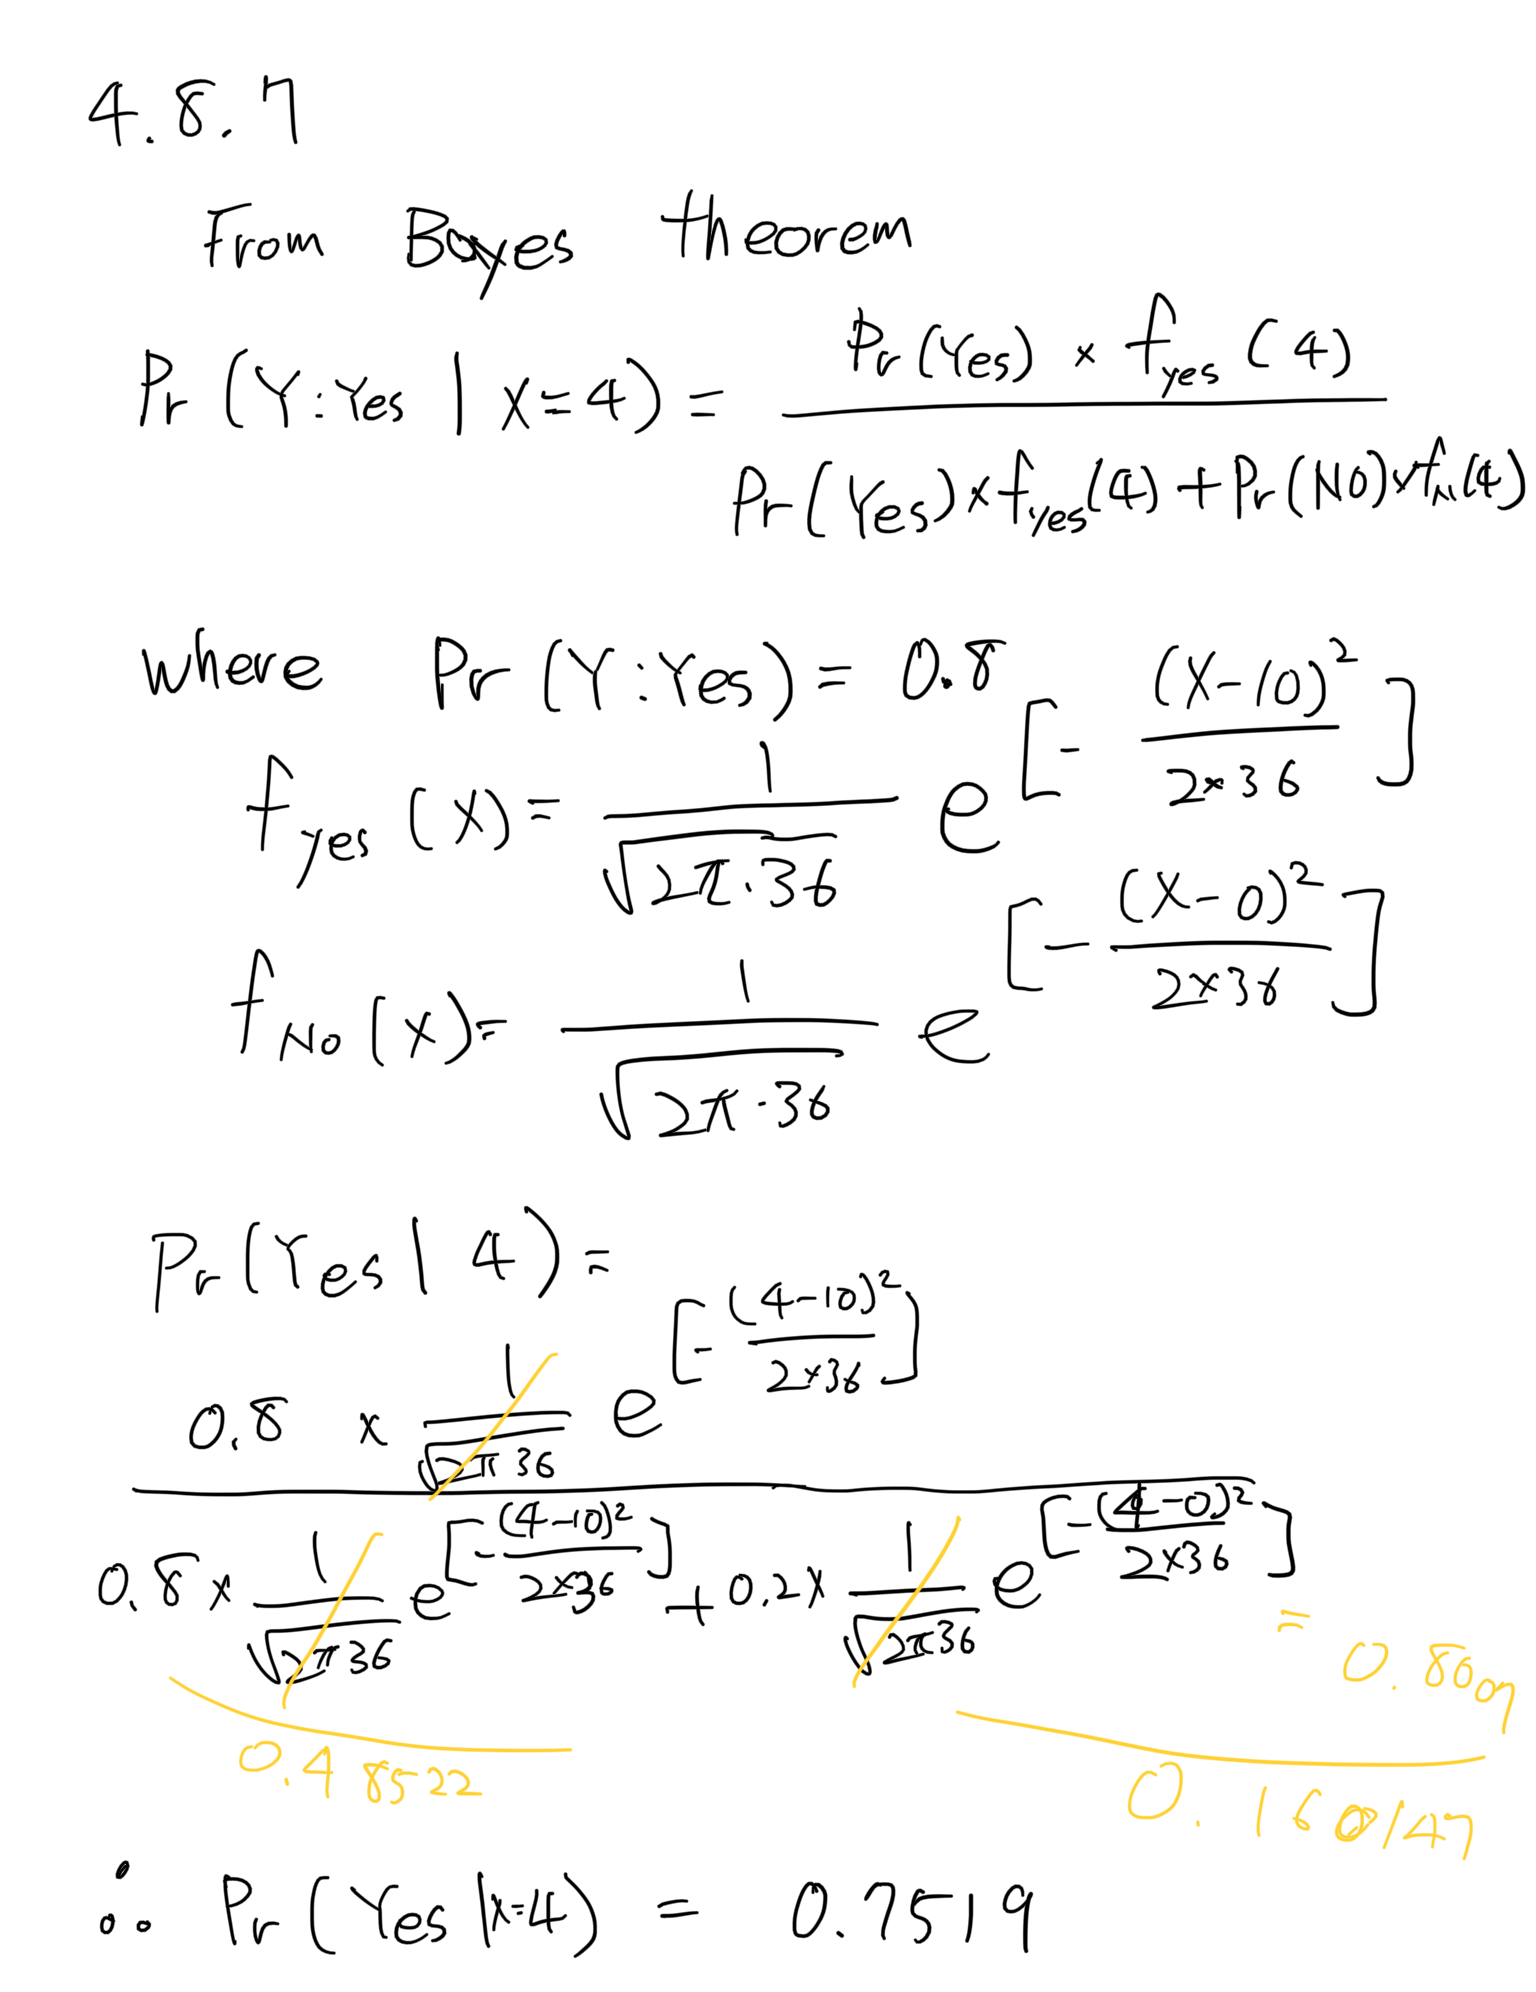 4.8.7
From Bayes theorem
Pr(Y:Yes | X=4) = Pr(Yes) × f_yes(4) / Pr(Yes)×f_yes(4) + Pr(NO)×f_No(4)
where Pr(Y:Yes) = 0.8
f_yes(X) = 1/√(2π·36) e^[-(X-10)²/2×36]
f_No(X) = 1/√(2π·36) e^[-(X-0)²/2×36]
Pr(Yes | 4) =
0.8 × 1/√(2π36) e^[-(4-10)²/2×36]
0.8 × 1/√(2π36) e^[-(4-10)²/2×36] + 0.2× 1/√(2π36) e^[-(4-0)²/2×36]
= 0.8007
0.48522
0.160147
∴ Pr(Yes|x=4) = 0.7519